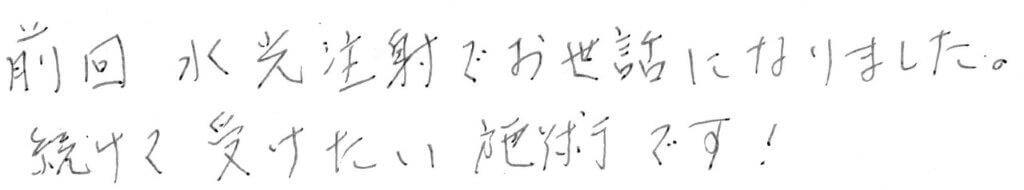 前回 水光注射でお世話になりました。
続けて受けたい施術です!